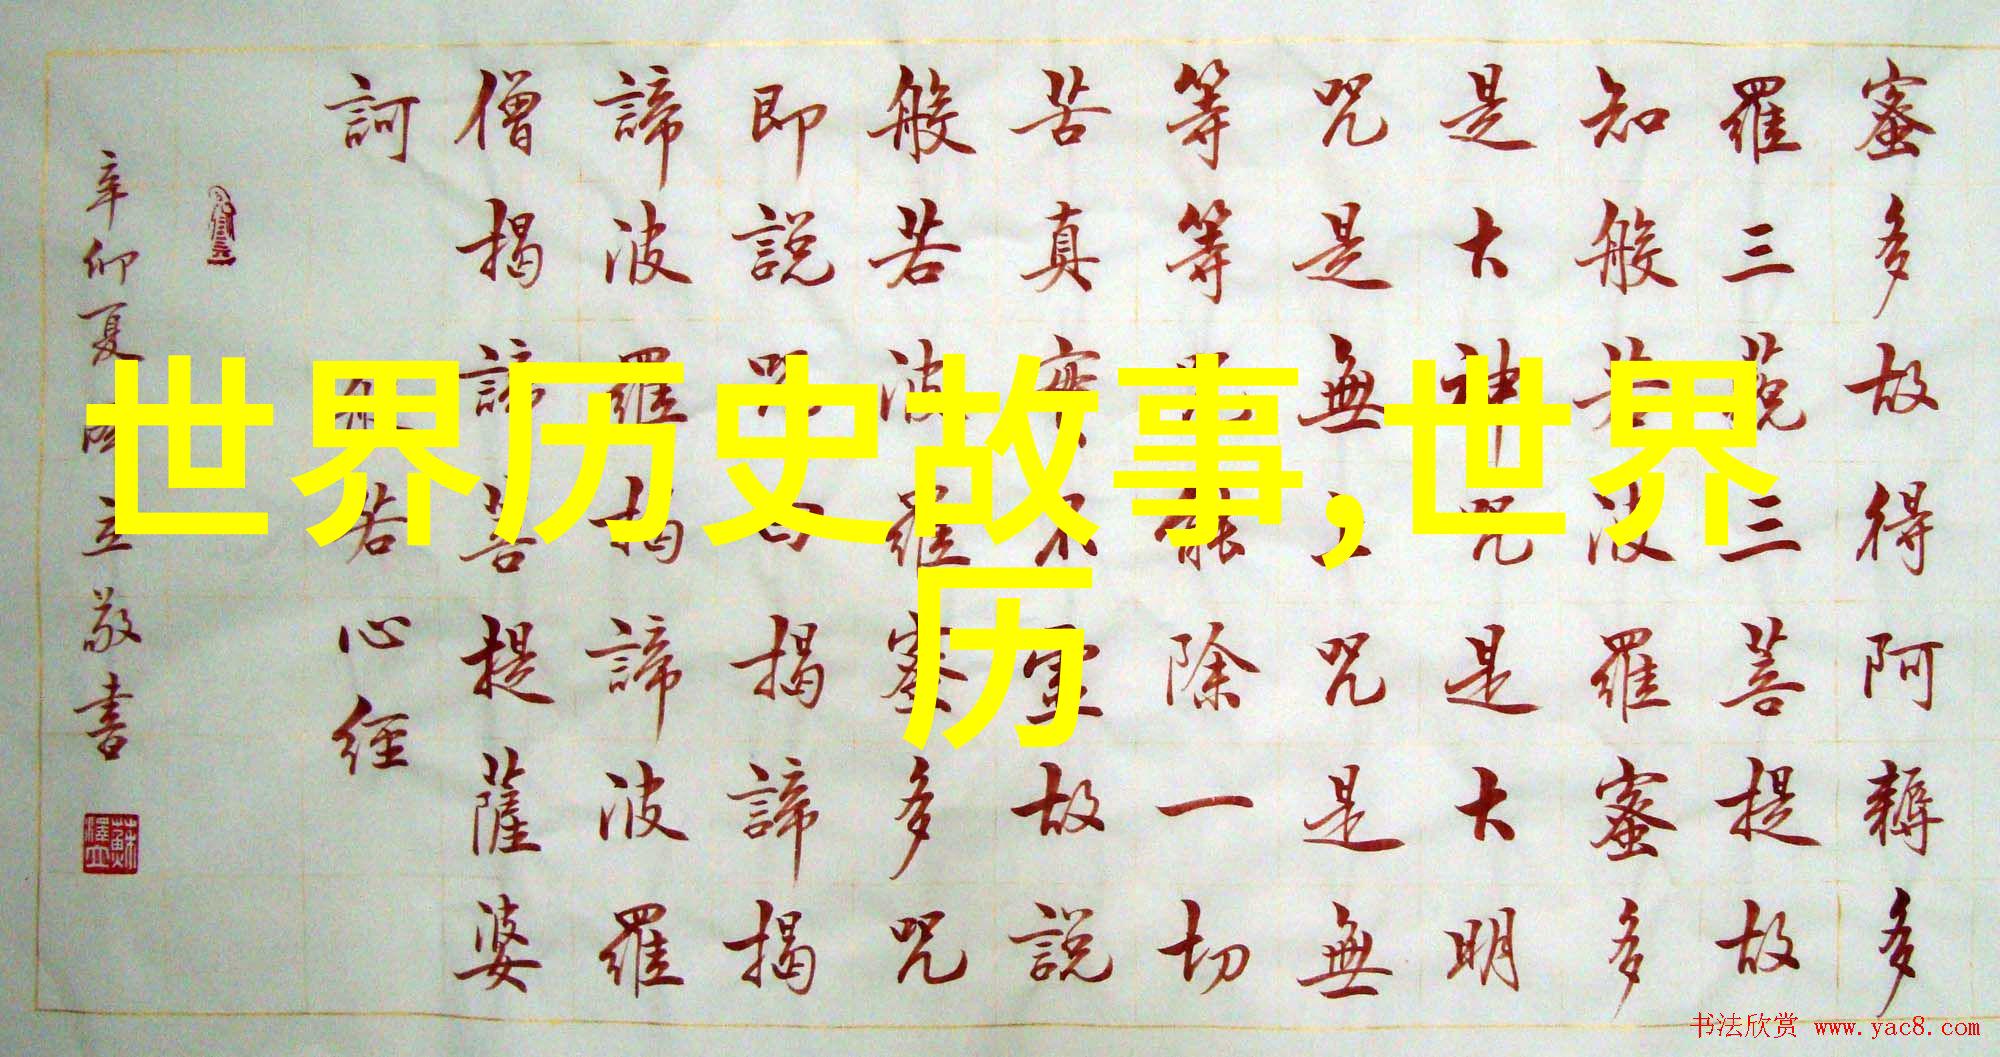 世界历史故事,世界
历
蜜多故得阿耨多
羅三藐三菩提故
知般若波羅蜜多
是大神咒是大明
咒是無上咒是無
等等咒能除一切
苦真實不虛故說
般若波羅蜜多咒
即說咒曰揭諦揭
諦波羅揭諦波羅
僧揭諦菩提薩婆
訶
般若心経
辛卯夏立敬書
书法欣赏 www.yac8.com